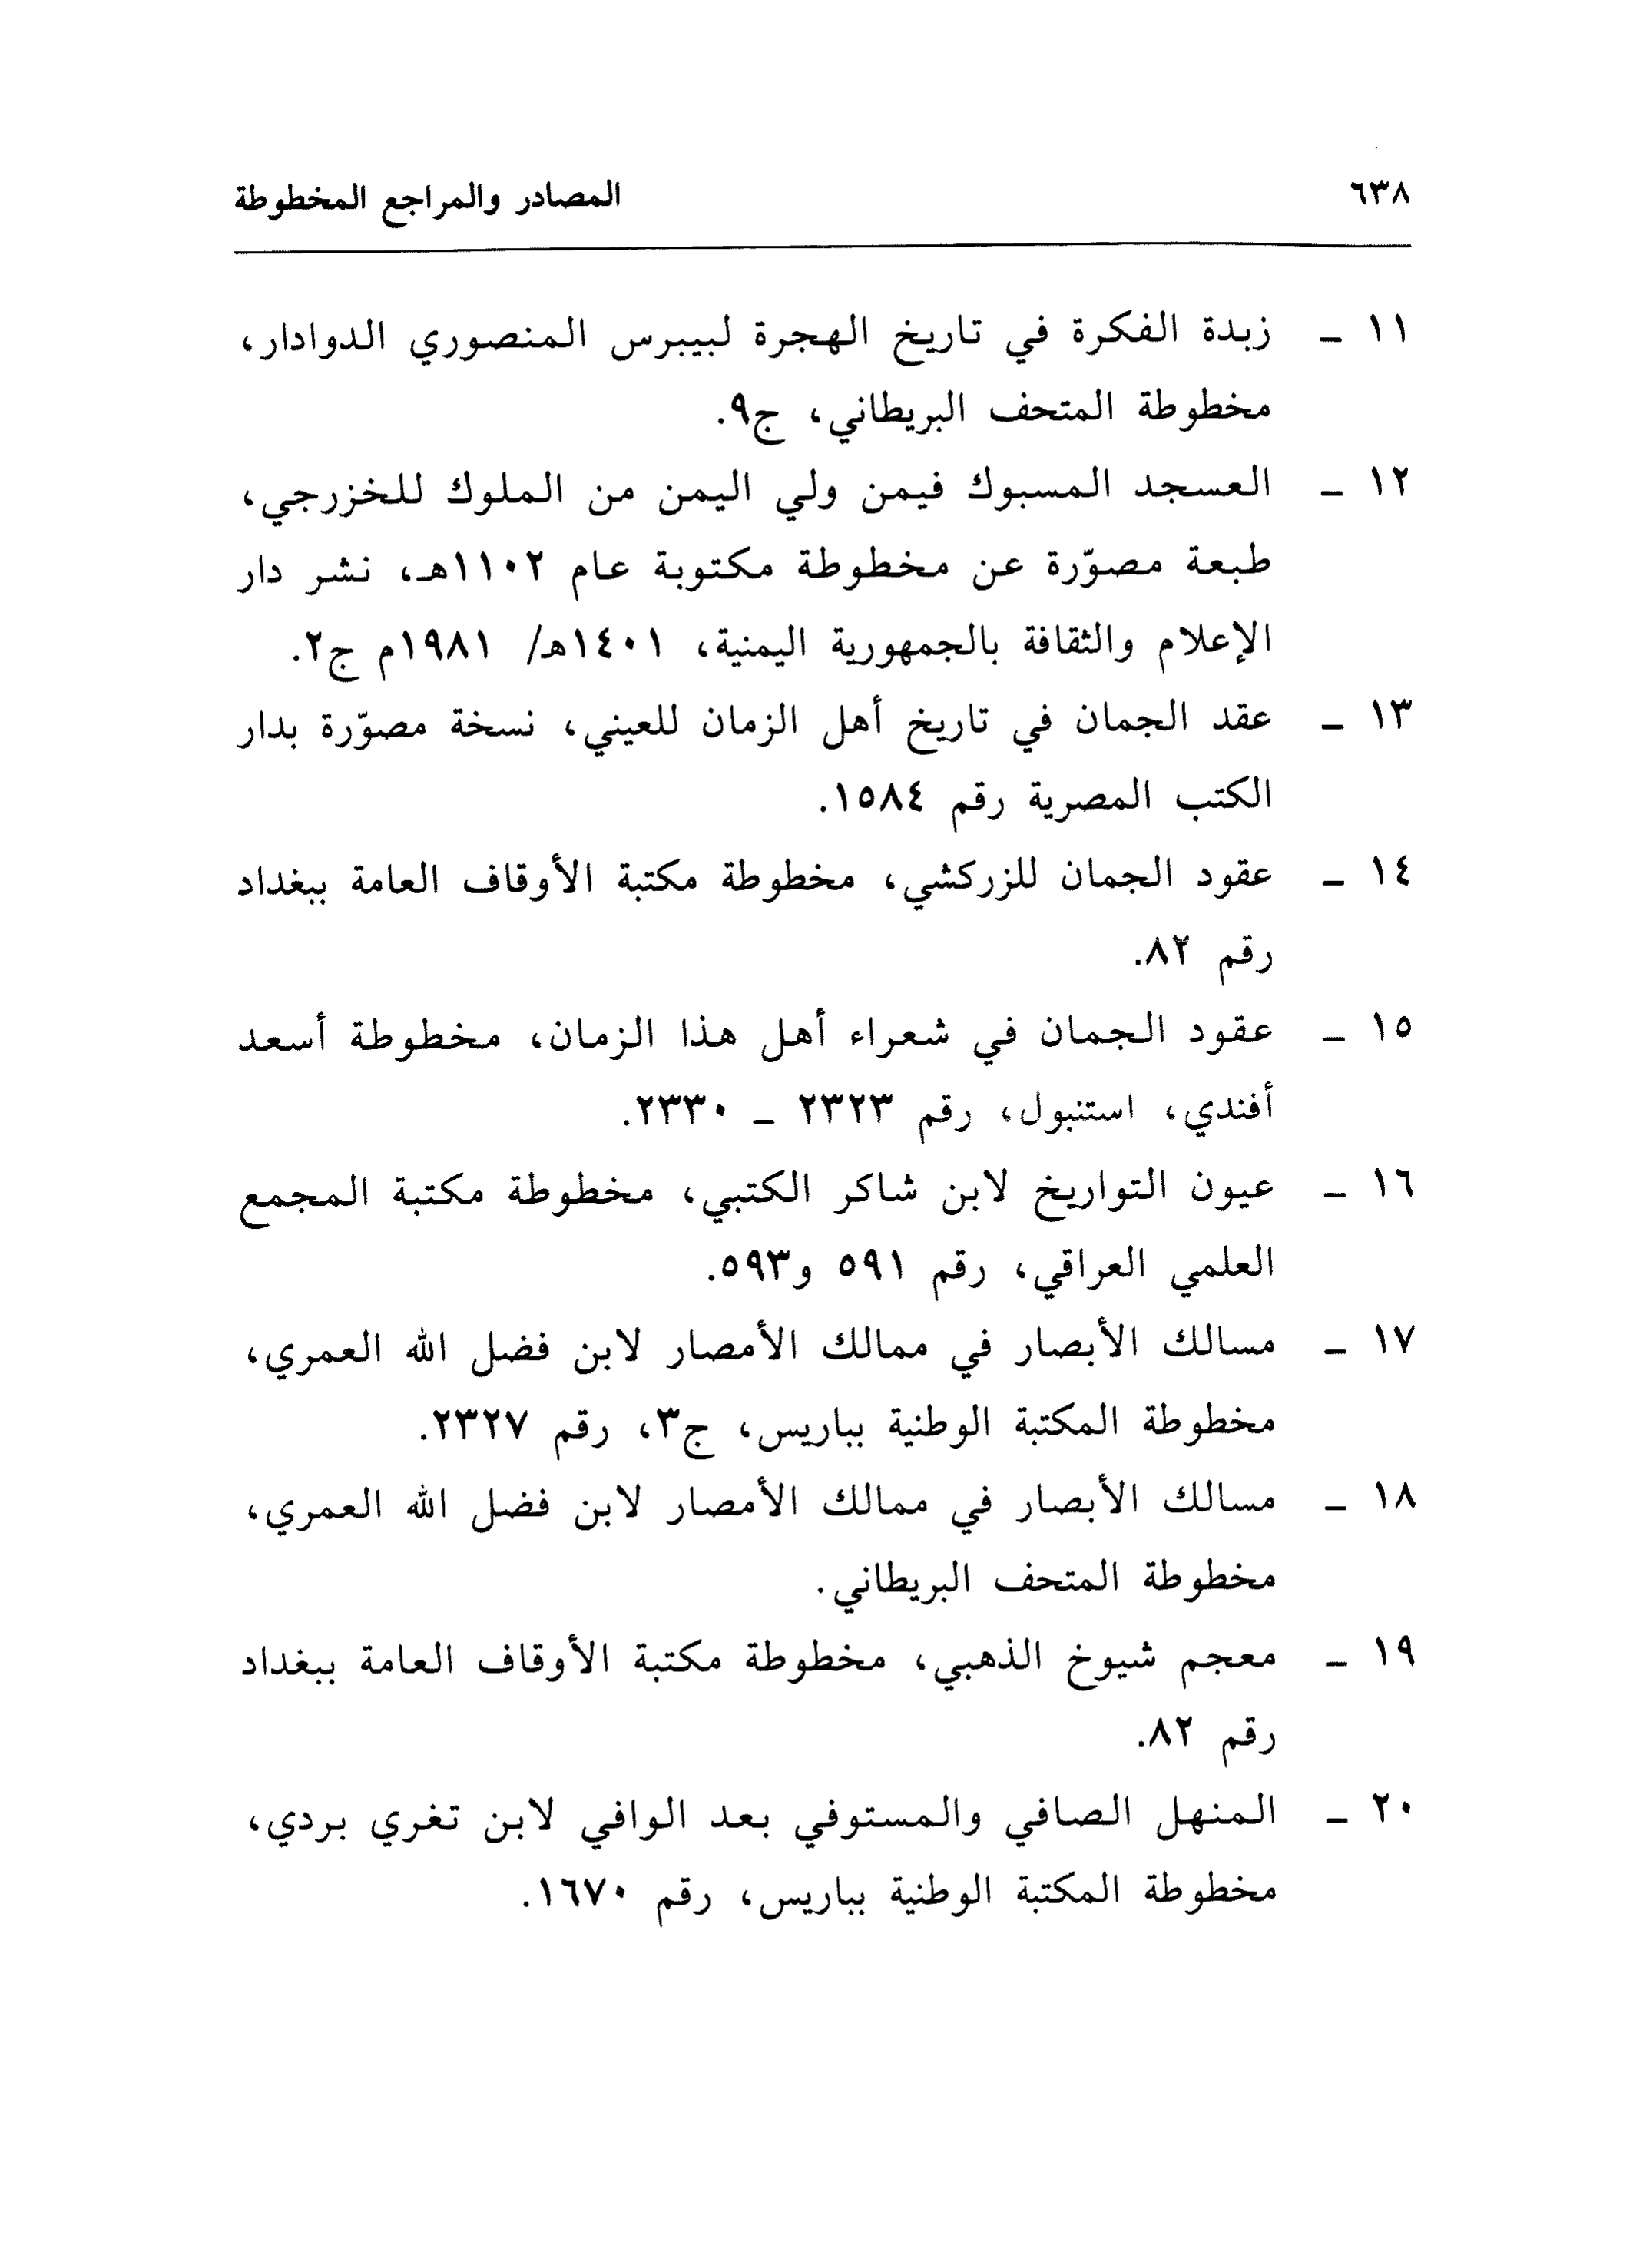 ٦٣٨ المصادر والمراجع المخطوطة
١١ ـ زبدة الفكرة في تاريخ الهجرة لبيبرس المنصوري الدوادار،
مخطوطة المتحف البريطاني، ج٩.
١٢ ـ العسجد المسبوك فيمن ولي اليمن من الملوك للخزرجي،
طبعة مصوّرة عن مخطوطة مكتوبة عام ١١٠٢هـ، نشر دار
الإعلام والثقافة بالجمهورية اليمنية، ١٤٠١هـ/ ١٩٨١م ج٢.
١٣ ـ عقد الجمان في تاريخ أهل الزمان للعيني، نسخة مصوّرة بدار
الكتب المصرية رقم ١٥٨٤.
١٤ ـ عقود الجمان للزركشي، مخطوطة مكتبة الأوقاف العامة ببغداد
رقم ٨٢.
١٥ ـ عقود الجمان في شعراء أهل هذا الزمان، مخطوطة أسعد
أفندي، استنبول، رقم ٢٣٢٣ ـ ٢٣٣٠.
١٦ ـ عيون التواريخ لابن شاكر الكتبي، مخطوطة مكتبة المجمع
العلمي العراقي، رقم ٥٩١ و٥٩٣.
١٧ ـ مسالك الأبصار في ممالك الأمصار لابن فضل الله العمري،
مخطوطة المكتبة الوطنية بباريس، ج٣، رقم ٢٣٢٧.
١٨ ـ مسالك الأبصار في ممالك الأمصار لابن فضل الله العمري،
مخطوطة المتحف البريطاني.
١٩ ـ معجم شيوخ الذهبي، مخطوطة مكتبة الأوقاف العامة ببغداد
رقم ٨٢.
٢٠ ـ المنهل الصافي والمستوفي بعد الوافي لابن تغري بردي،
مخطوطة المكتبة الوطنية بباريس، رقم ١٦٧٠.